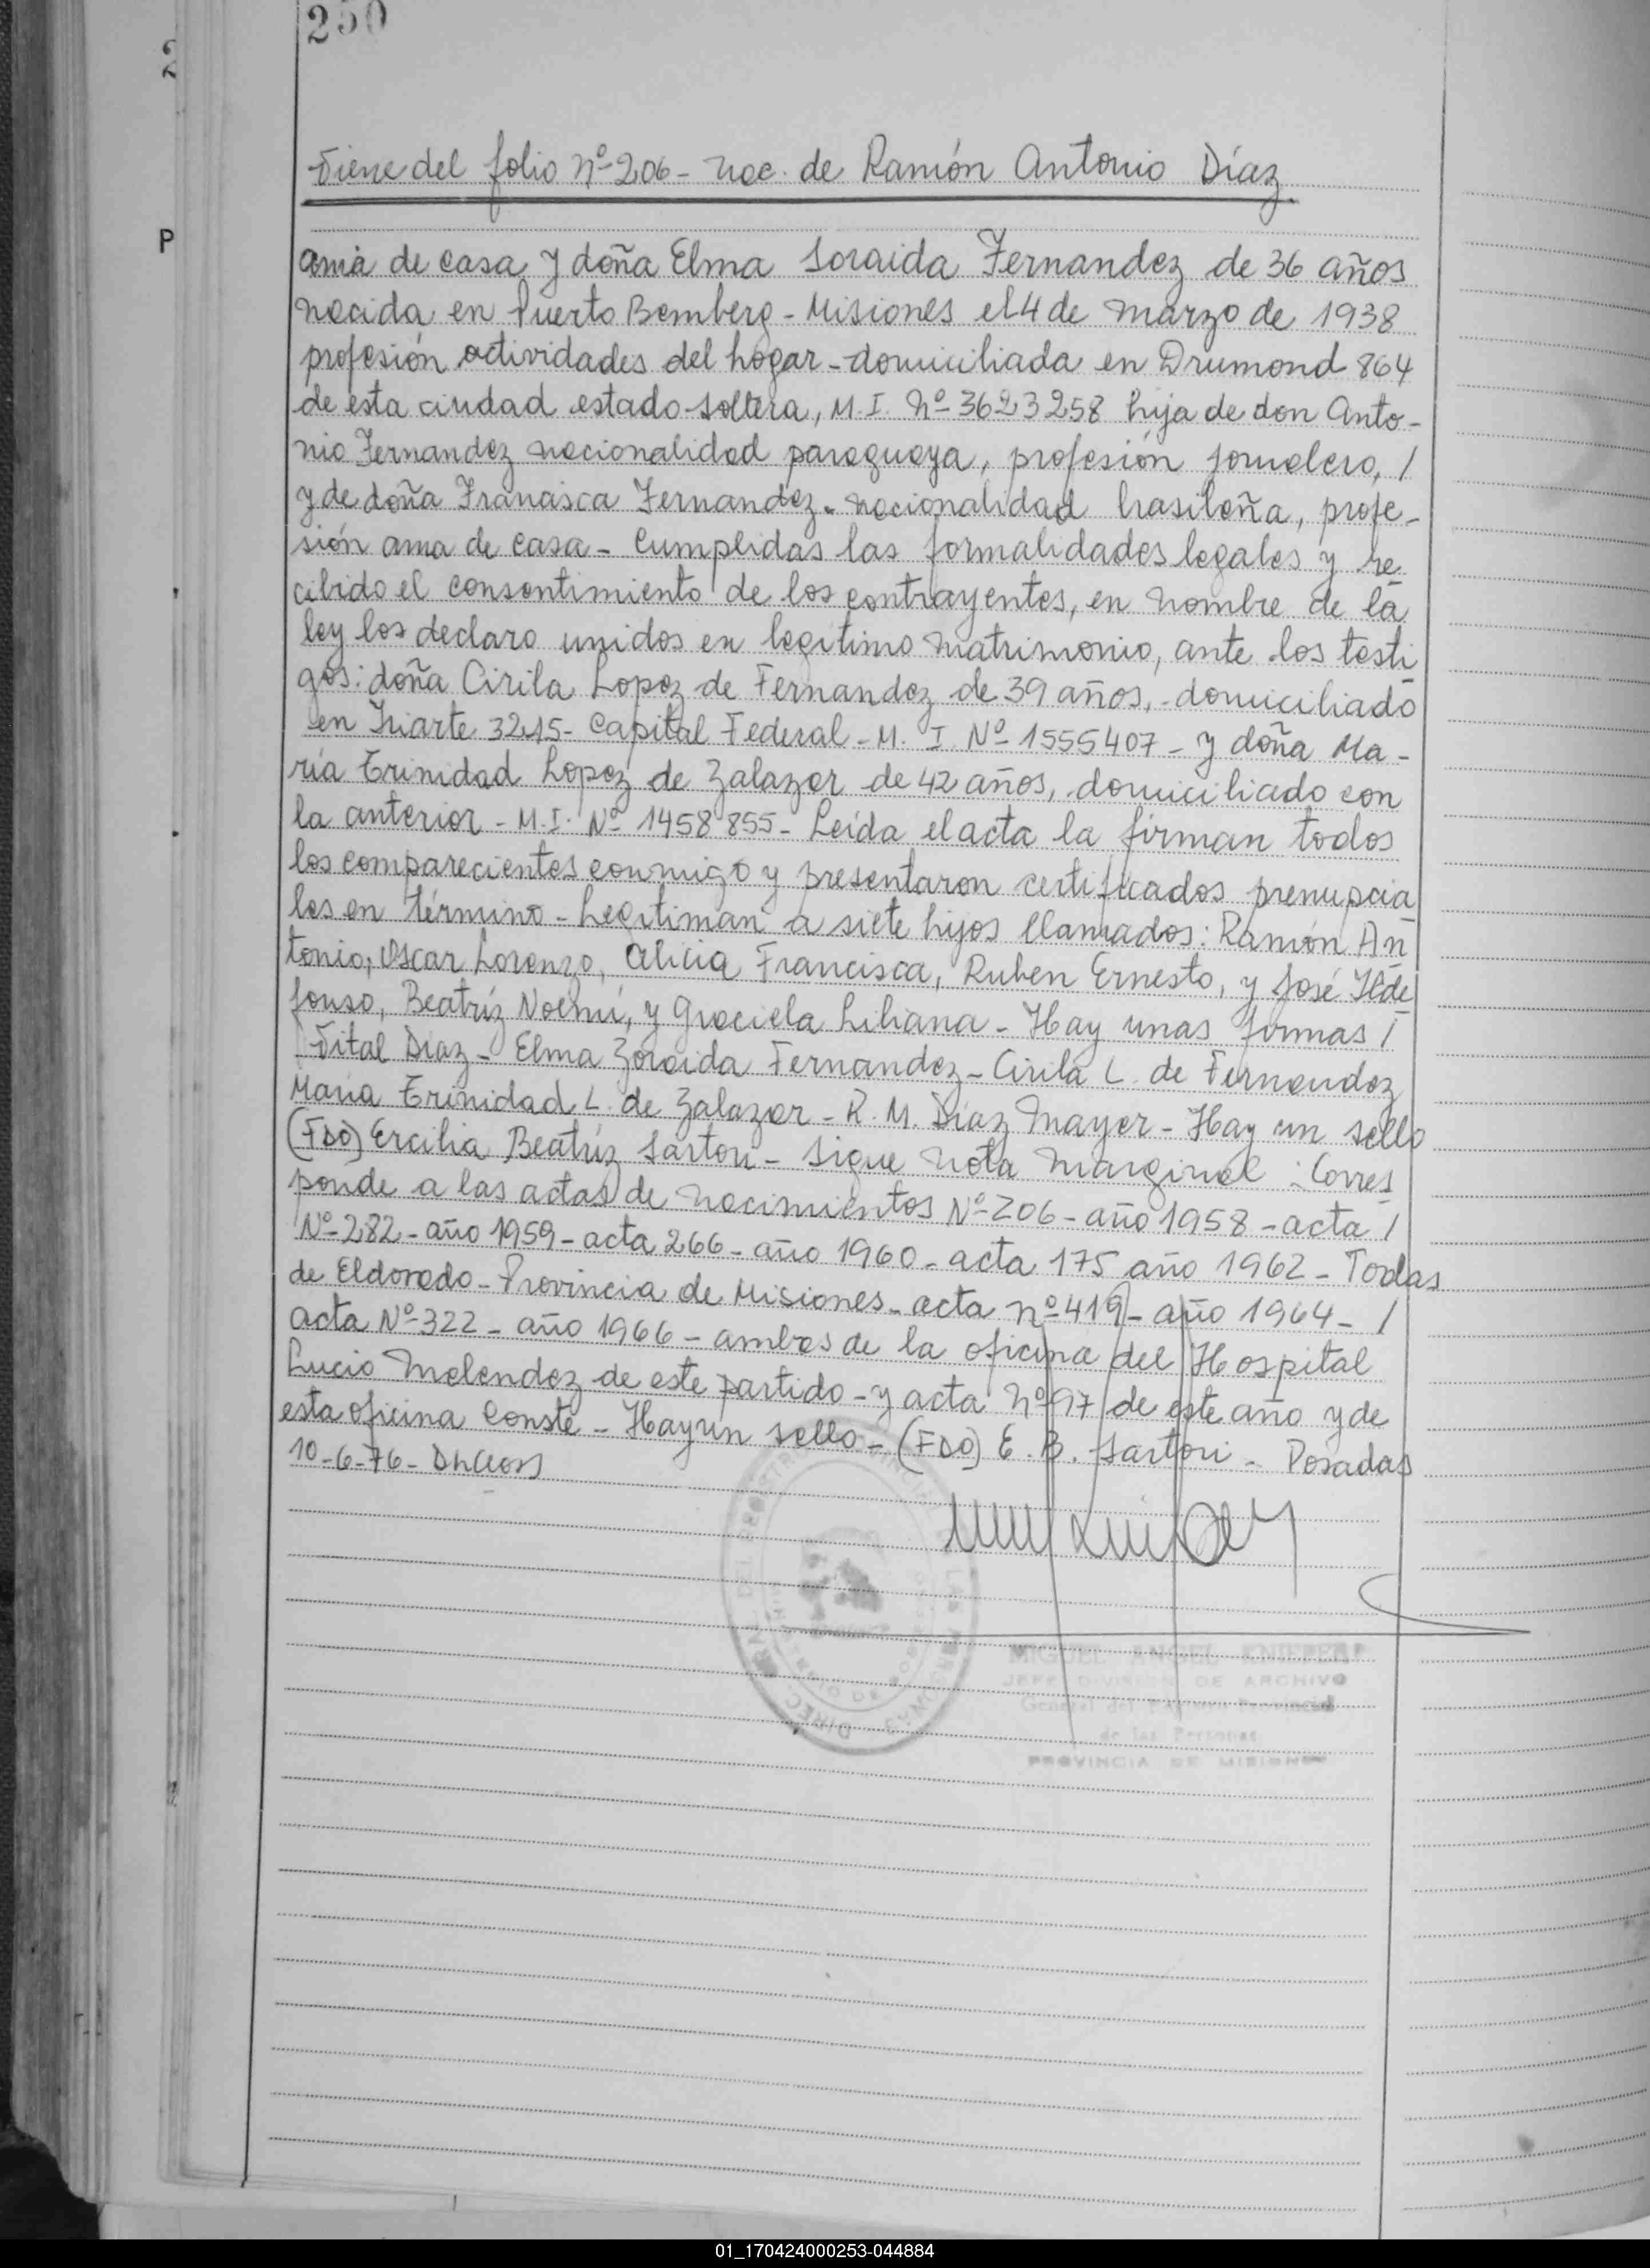 250
2
Viene del folio nº 206 - nac. de Ramón Antonio Díaz.
P
ama de casa y doña Elma Soraida Fernandez de 36 años
nacida en Puerto Bemberg - Misiones el 4 de marzo de 1938
profesión actividades del hogar - domiciliada en Drumond 864
de esta ciudad estado soltera, M.I. nº 3623258 hija de don Anto-
nio Fernandez nacionalidad paraguaya, profesión jornalero, /
y de doña Francisca Fernandez. nacionalidad brasileña, profe-
sión ama de casa - Cumplidas las formalidades legales y re
cibido el consentimiento de los contrayentes, en nombre de la
ley los declaro unidos en legítimo matrimonio, ante los testi
gos: doña Cirila Lopez de Fernandez de 39 años, - domiciliado
en Iriarte 3215 - Capital Federal - M. I. Nº 1555407 - y doña Ma -
ría Trinidad Lopez de Zalazar de 42 años, domiciliado con
la anterior - M.I. Nº 1458855 - Leída el acta la firman todos
los comparecientes conmigo y presentaron certificados prenupcia
les en término - Legitiman a siete hijos llamados: Ramón An
tonio, Oscar Lorenzo, Alicia Francisca, Ruben Ernesto, y José Ilde
fonso, Beatríz Noemí, y Graciela Liliana - Hay unas firmas /
Vital Diaz - Elma Zoraida Fernandez - Cirila L. de Fernandez
Maria Trinidad L. de Zalazar - R. M. Díaz Mayer - Hay un sello
(FDO) Ercilia Beatríz Sartori - Sigue nota marginal : Corres
ponde a las actas de nacimientos Nº 206 - año 1958 - acta /
Nº 282 - año 1959 - acta 266 - año 1960 - acta 175 año 1962 - Todas
de Eldorado - Provincia de Misiones - acta nº 419 - año 1964 - /
acta Nº 322 - año 1966 - ambas de la oficina del Hospital
Lucio Melendez de este partido - y acta nº 97 de este año y de
esta oficina Conste - Hay un sello - (FDO) E. B. Sartori - Posadas
10-6-76 -
MIGUEL ANGEL
JEFE DIVISION DE ARCHIVO
General del Registro Provincial
de las Personas
PROVINCIA DE MISIONES
01_170424000253-044884